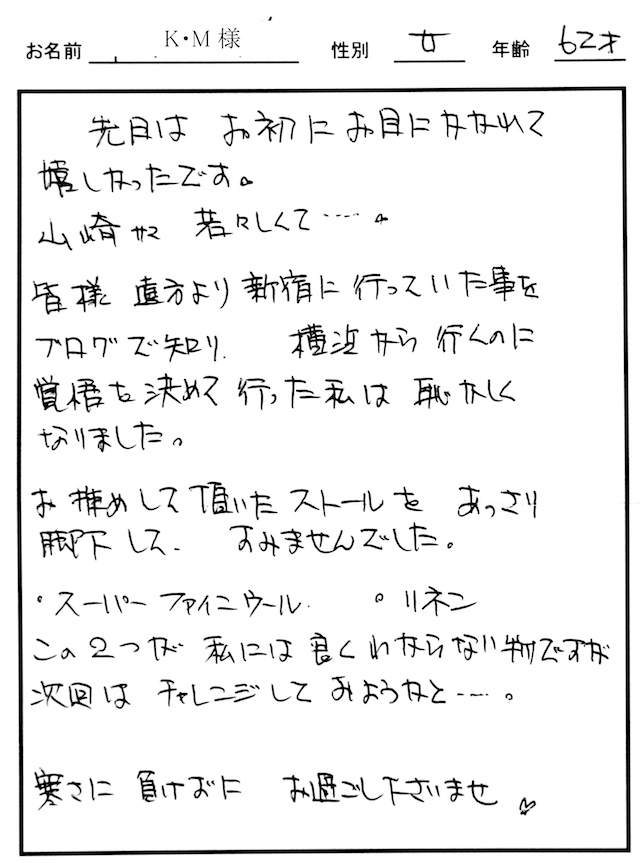 お名前 K・M様 性別 女 年齢 62才
先日は お初にお目にかかれて
嬉しかったです。
山崎サマ 若々しくて……。
皆様 直方より新宿に行っていた事を
ブログで知り、 横浜から行くのに
覚悟を決めて行った私は恥かしく
なりました。
お推めして頂いたストールを あっさり
脚下して、 すみませんでした。
・スーパーファインウール ・リネン
この2つが 私には良くわからない物ですが
次回は チャレンジして みようかと……。
寒さに 負けずに お過ごし下さいませ♡